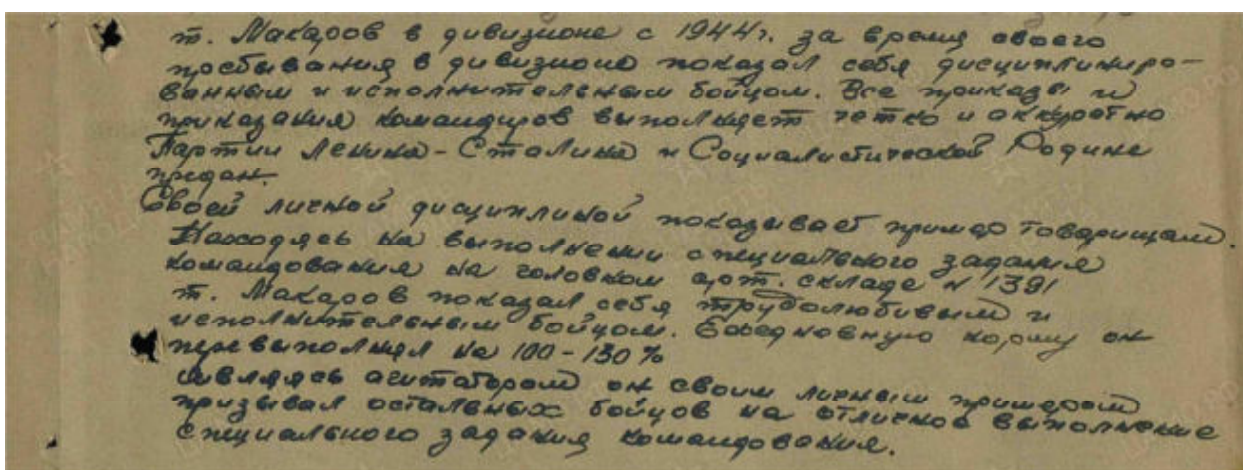 т. Макаров в дивизионе с 1944г. за время своего
пребывания в дивизионе показал себя дисциплиниро-
ванным и исполнительным бойцом. Все приказы и
приказания командиров выполняет четко и аккуратно
Партии Ленина-Сталина и Социалистической Родине
предан.
Своей личной дисциплиной показывает пример товарищам.
Находясь на выполнении специального задания
командования на головном арт. складе № 1391
т. Макаров показал себя трудолюбивым и
исполнительным бойцом. Ежедневную норму он
перевыполнял на 100-130%
Являясь агитатором он своим личным примером
призывал остальных бойцов на отличное выполнение
специального задания командования.